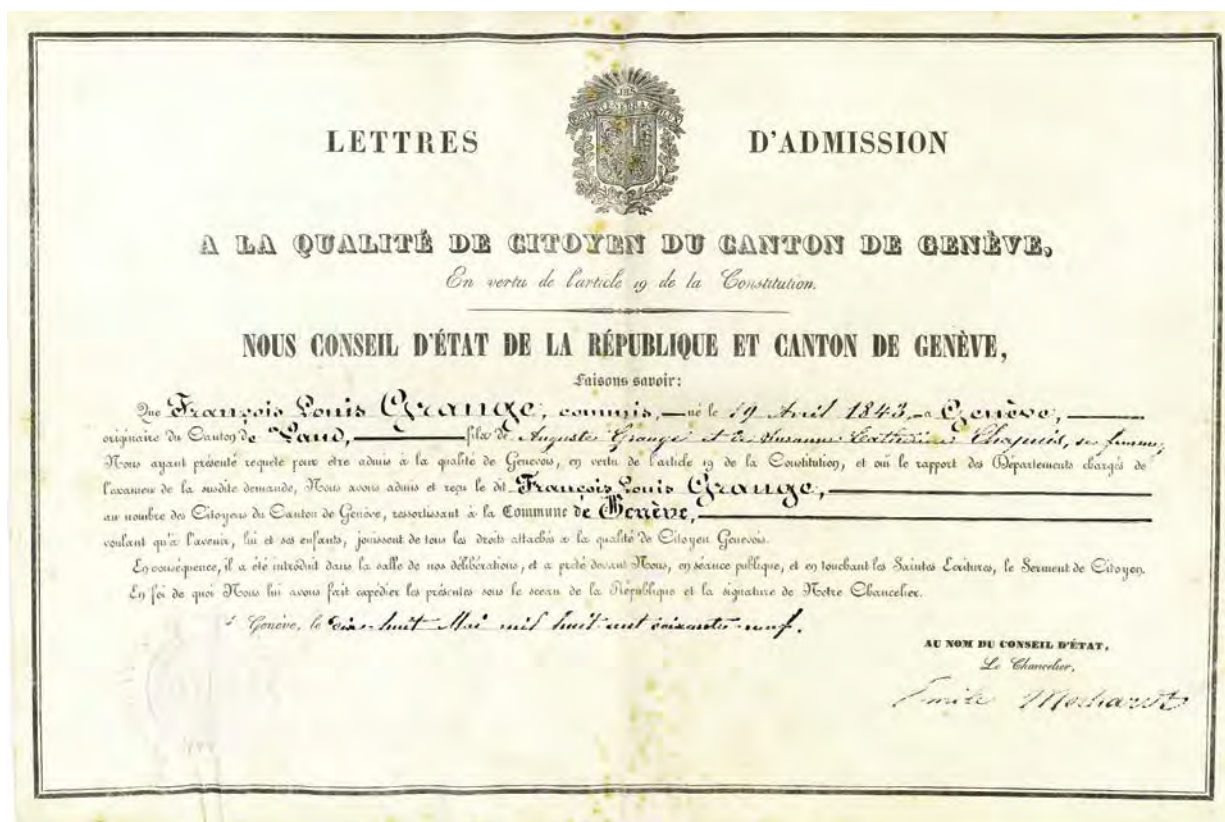 LETTRES D'ADMISSION
A LA QUALITÉ DE CITOYEN DU CANTON DE GENÈVE,
En vertu de l'article 19 de la Constitution.
NOUS CONSEIL D'ÉTAT DE LA RÉPUBLIQUE ET CANTON DE GENÈVE,
Faisons savoir:
Que François Louis Grange, commis, né le 19 Avril 1843, a Genève,
originaire du Canton de Vaud, fils de Auguste Grange et de Susanne Catherine Chapuis, sa femme,
Nous ayant présenté requête pour être admis à la qualité de Genevois, en vertu de l'article 19 de la Constitution, et ouï le rapport des Départements chargés de
l'examen de la susdite demande, Nous avons admis et reçu le dit François Louis Grange,
au nombre des Citoyens du Canton de Genève, ressortissant à la Commune de Genève,
voulant qu'à l'avenir, lui et ses enfants, jouissent de tous les droits attachés à la qualité de Citoyen Genevois.
En conséquence, il a été introduit dans la salle de nos délibérations, et a prêté devant Nous, en séance publique, et en touchant les Saintes Ecritures, le Serment de Citoyen.
En foi de quoi Nous lui avons fait expédier les présentes sous le sceau de la République et la signature de Notre Chancelier.
Genève, le dix-huit Mai mil huit cent soixante neuf.
AU NOM DU CONSEIL D'ÉTAT,
Le Chancelier,
Emile